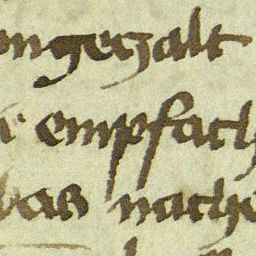 ongezalt
empfach
bas nache